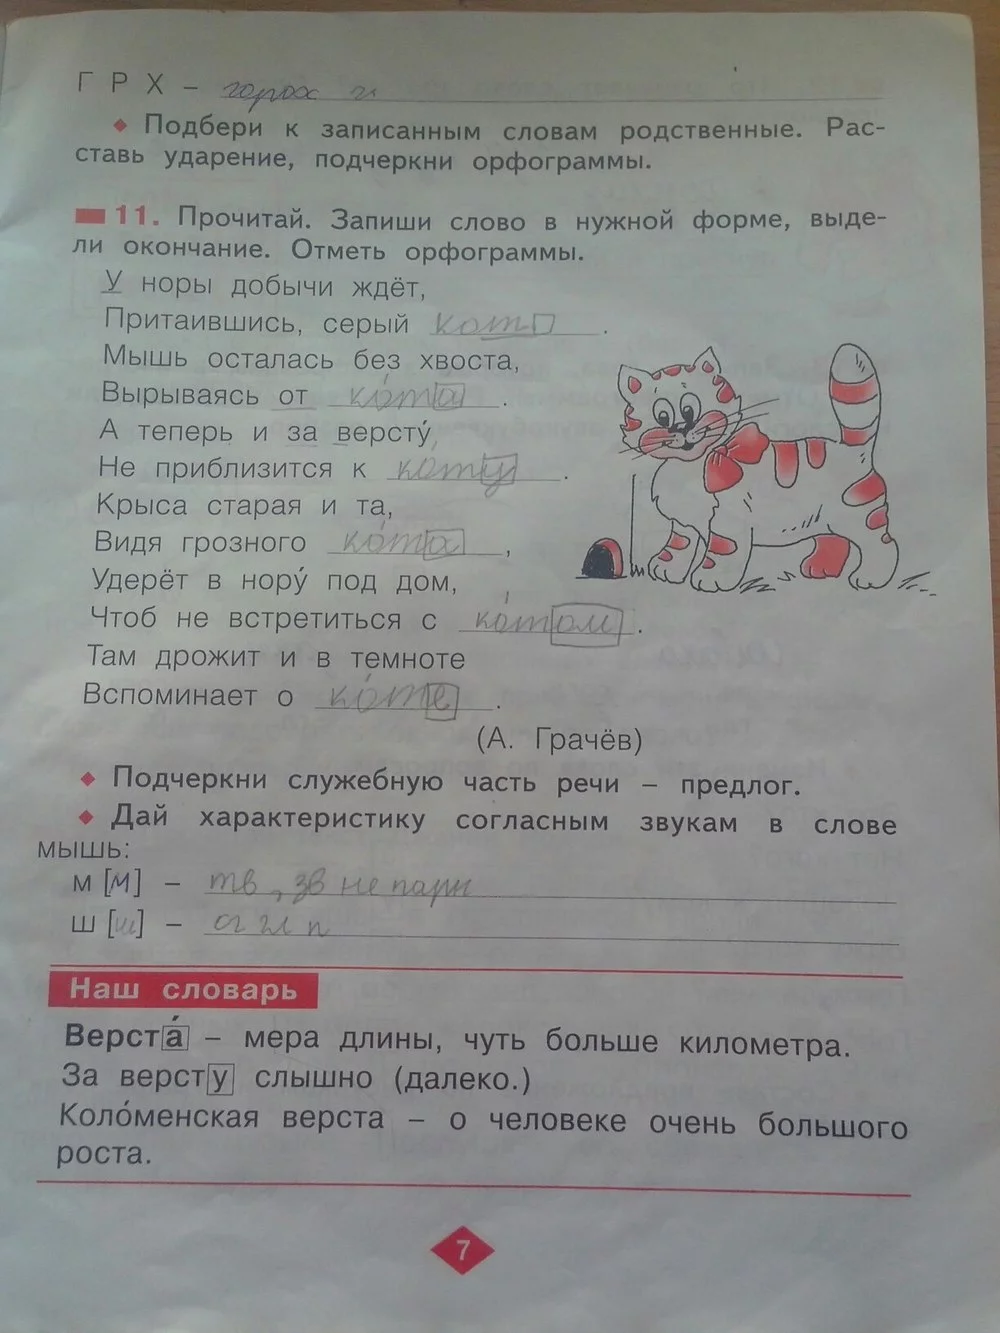 Г Р Х – горох
◆ Подбери к записанным словам родственные. Рас-
ставь ударение, подчеркни орфограммы.
11. Прочитай. Запиши слово в нужной форме, выде-
ли окончание. Отметь орфограммы.
У норы добычи ждёт,
Притаившись, серый кот.
Мышь осталась без хвоста,
Вырываясь от ко́та.
А теперь и за версту́,
Не приблизится к ко́ту.
Крыса старая и та,
Видя грозного ко́та,
Удерёт в нору́ под дом,
Чтоб не встретиться с ко́том.
Там дрожит и в темноте
Вспоминает о ко́те.
(А. Грачёв)
◆ Подчеркни служебную часть речи – предлог.
◆ Дай характеристику согласным звукам в слове
мышь:
м [м] – тв, зв не парн
ш [ш] – сг гл п
Наш словарь
Верста́ – мера длины, чуть больше километра.
За версту слышно (далеко.)
Коло́менская верста – о человеке очень большого
роста.
7